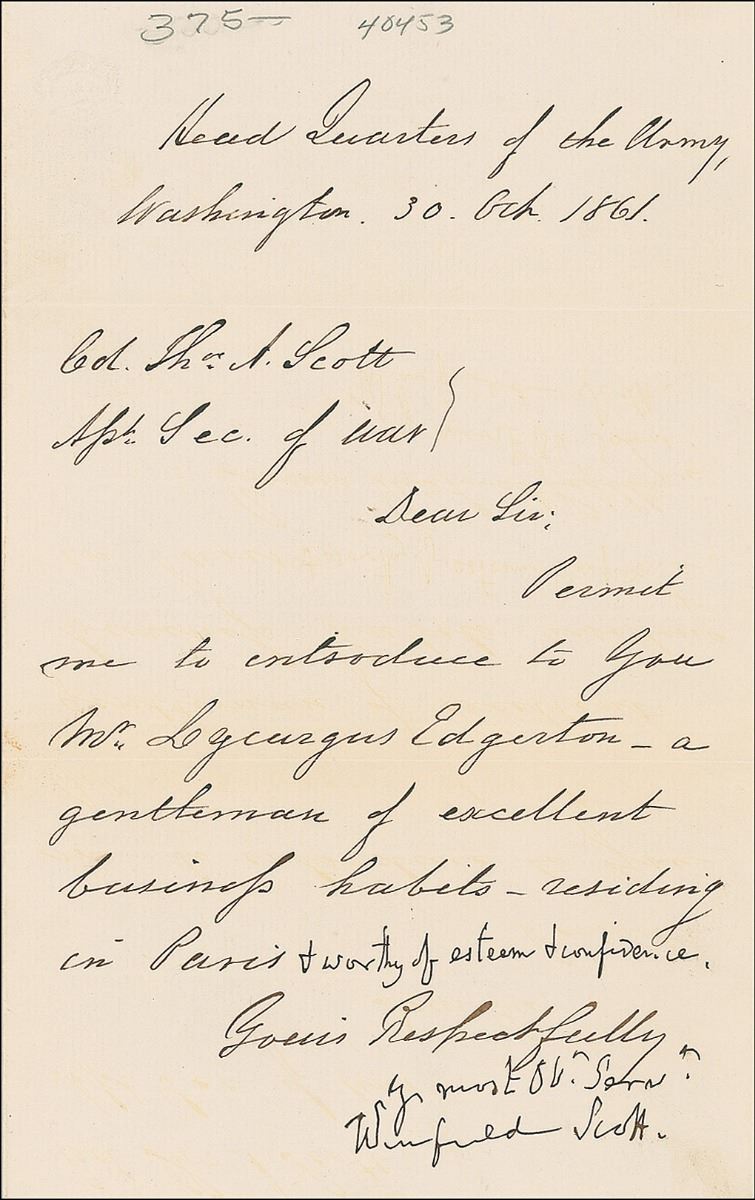 375— 40453
Head Quarters of the Army,
Washington. 30. Oct. 1861.
Col. Thos. A. Scott
Asst. Sec. of War
Dear Sir;
Permit
me to introduce to You
Mr. Lycurgus Edgerton – a
gentleman of excellent
business habits – residing
in Paris & worthy of esteem & confidence.
Yours Respectfully
Yr most Obt. Servt.
Winfield Scott.